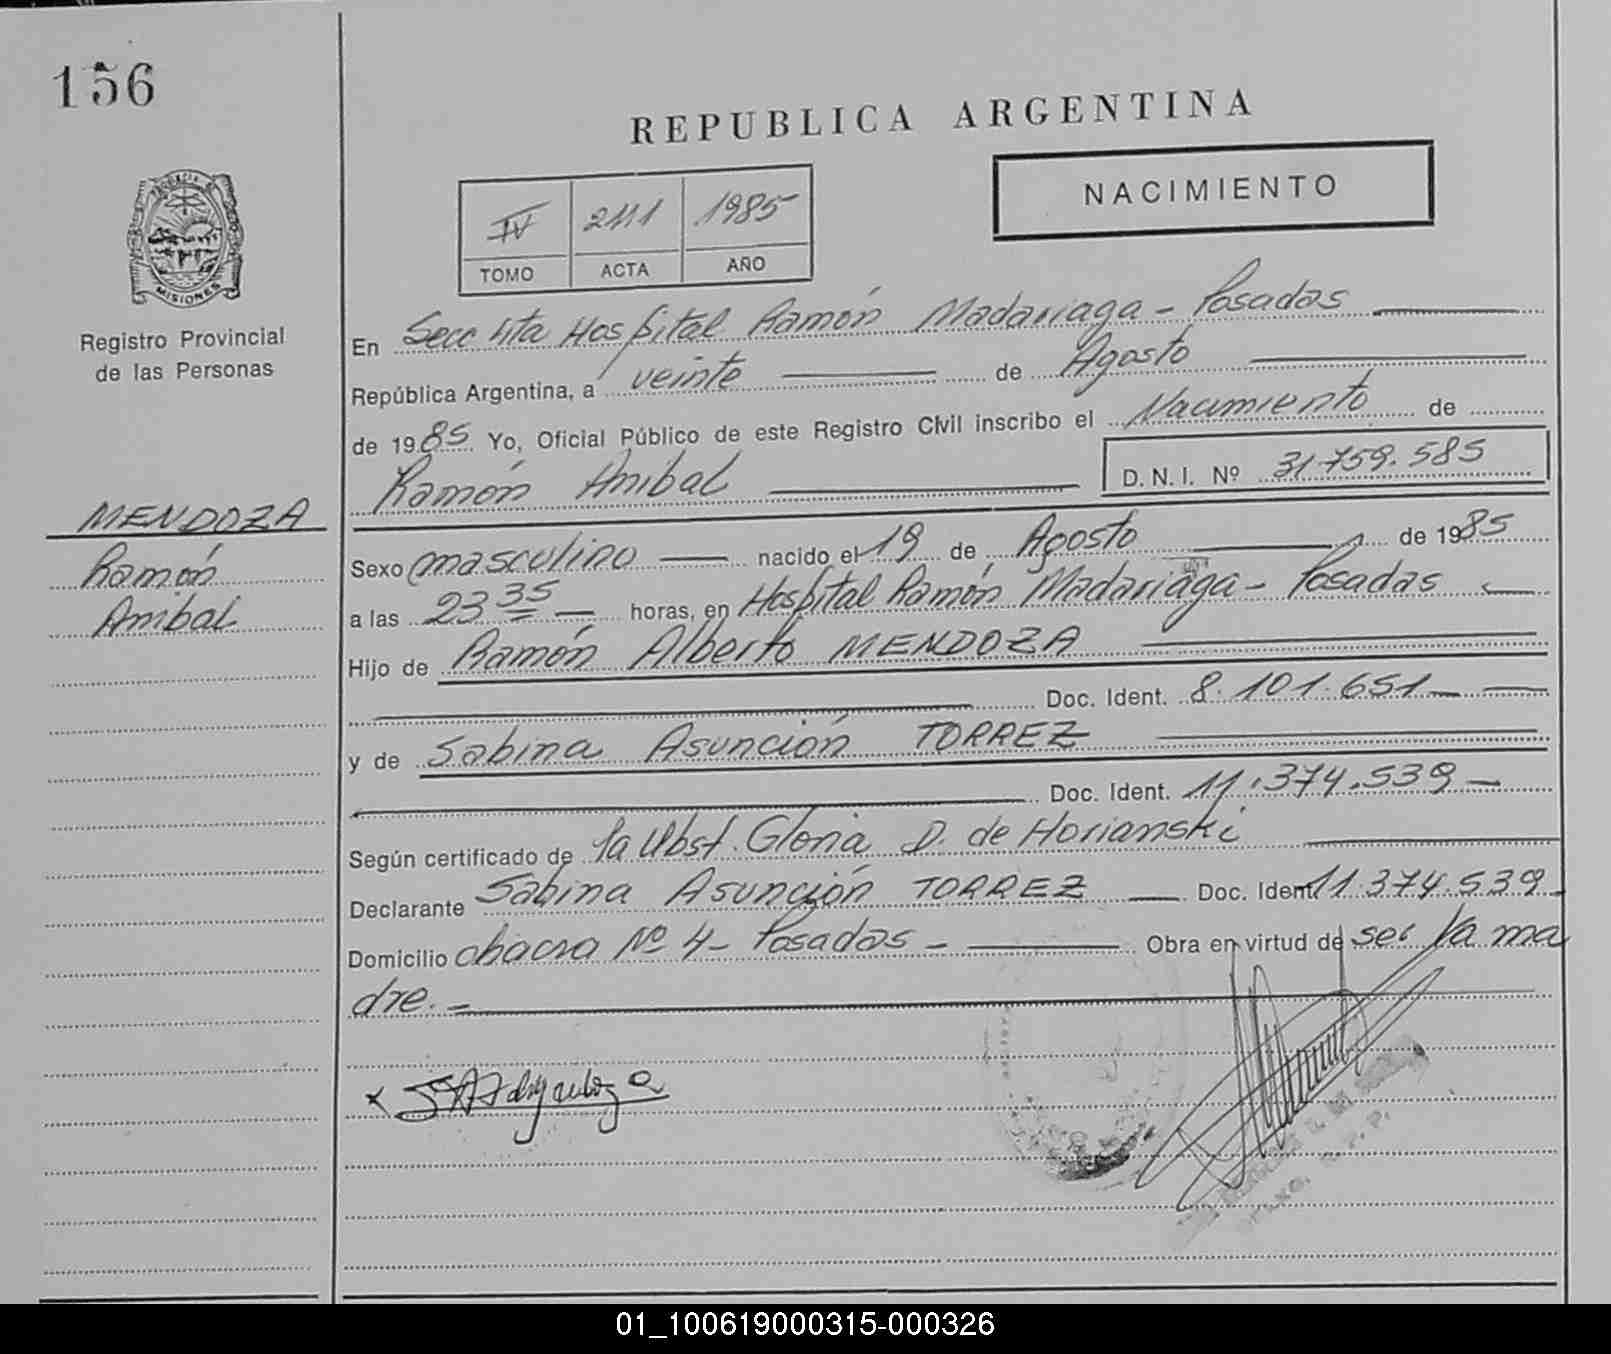 156
REPUBLICA ARGENTINA
NACIMIENTO
IV 2111 1985
TOMO ACTA AÑO
PROVINCIA DE
MISIONES
Registro Provincial
de las Personas
MENDOZA
Ramón
Anibal
En Secc 4ta Hospital Ramón Madariaga - Posadas
República Argentina, a veinte de Agosto
de 1985 Yo, Oficial Público de este Registro Civil inscribo el Nacimiento de
Ramón Anibal D. N. I. Nº 31.759.585
Sexo masculino nacido el 19 de Agosto de 1985
a las 23 35 horas, en Hospital Ramón Madariaga - Posadas
Hijo de Ramón Alberto MENDOZA
Doc. Ident. 8.101.651
y de Sabina Asunción TORREZ
Doc. Ident. 11.374.539
Según certificado de la Obst. Gloria D. de Horianski
Declarante Sabina Asunción TORREZ Doc. Ident. 11.374.539
Domicilio chacra Nº 4 - Posadas - Obra en virtud de ser la ma
dre. -
01_100619000315-000326